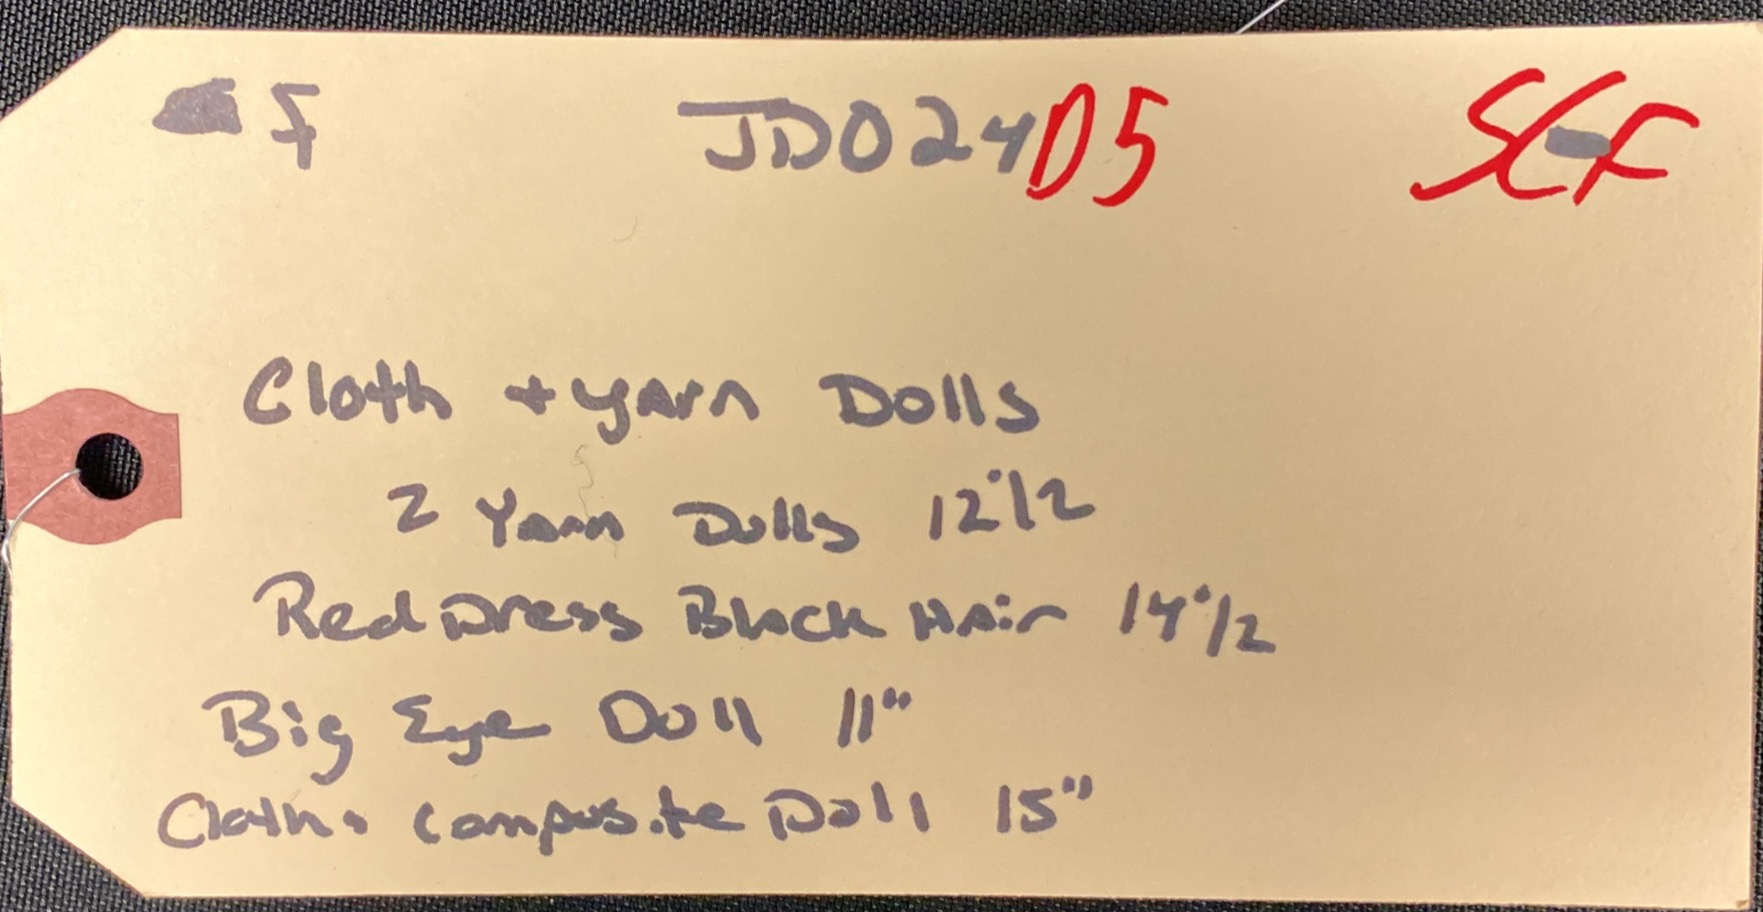 F JD024D5 SCF
Cloth + yarn Dolls
2 Yarn Dolls 12"1/2
Red Dress Black Hair 14"1/2
Big Eye Doll 11"
Cloth + Composite Doll 15"